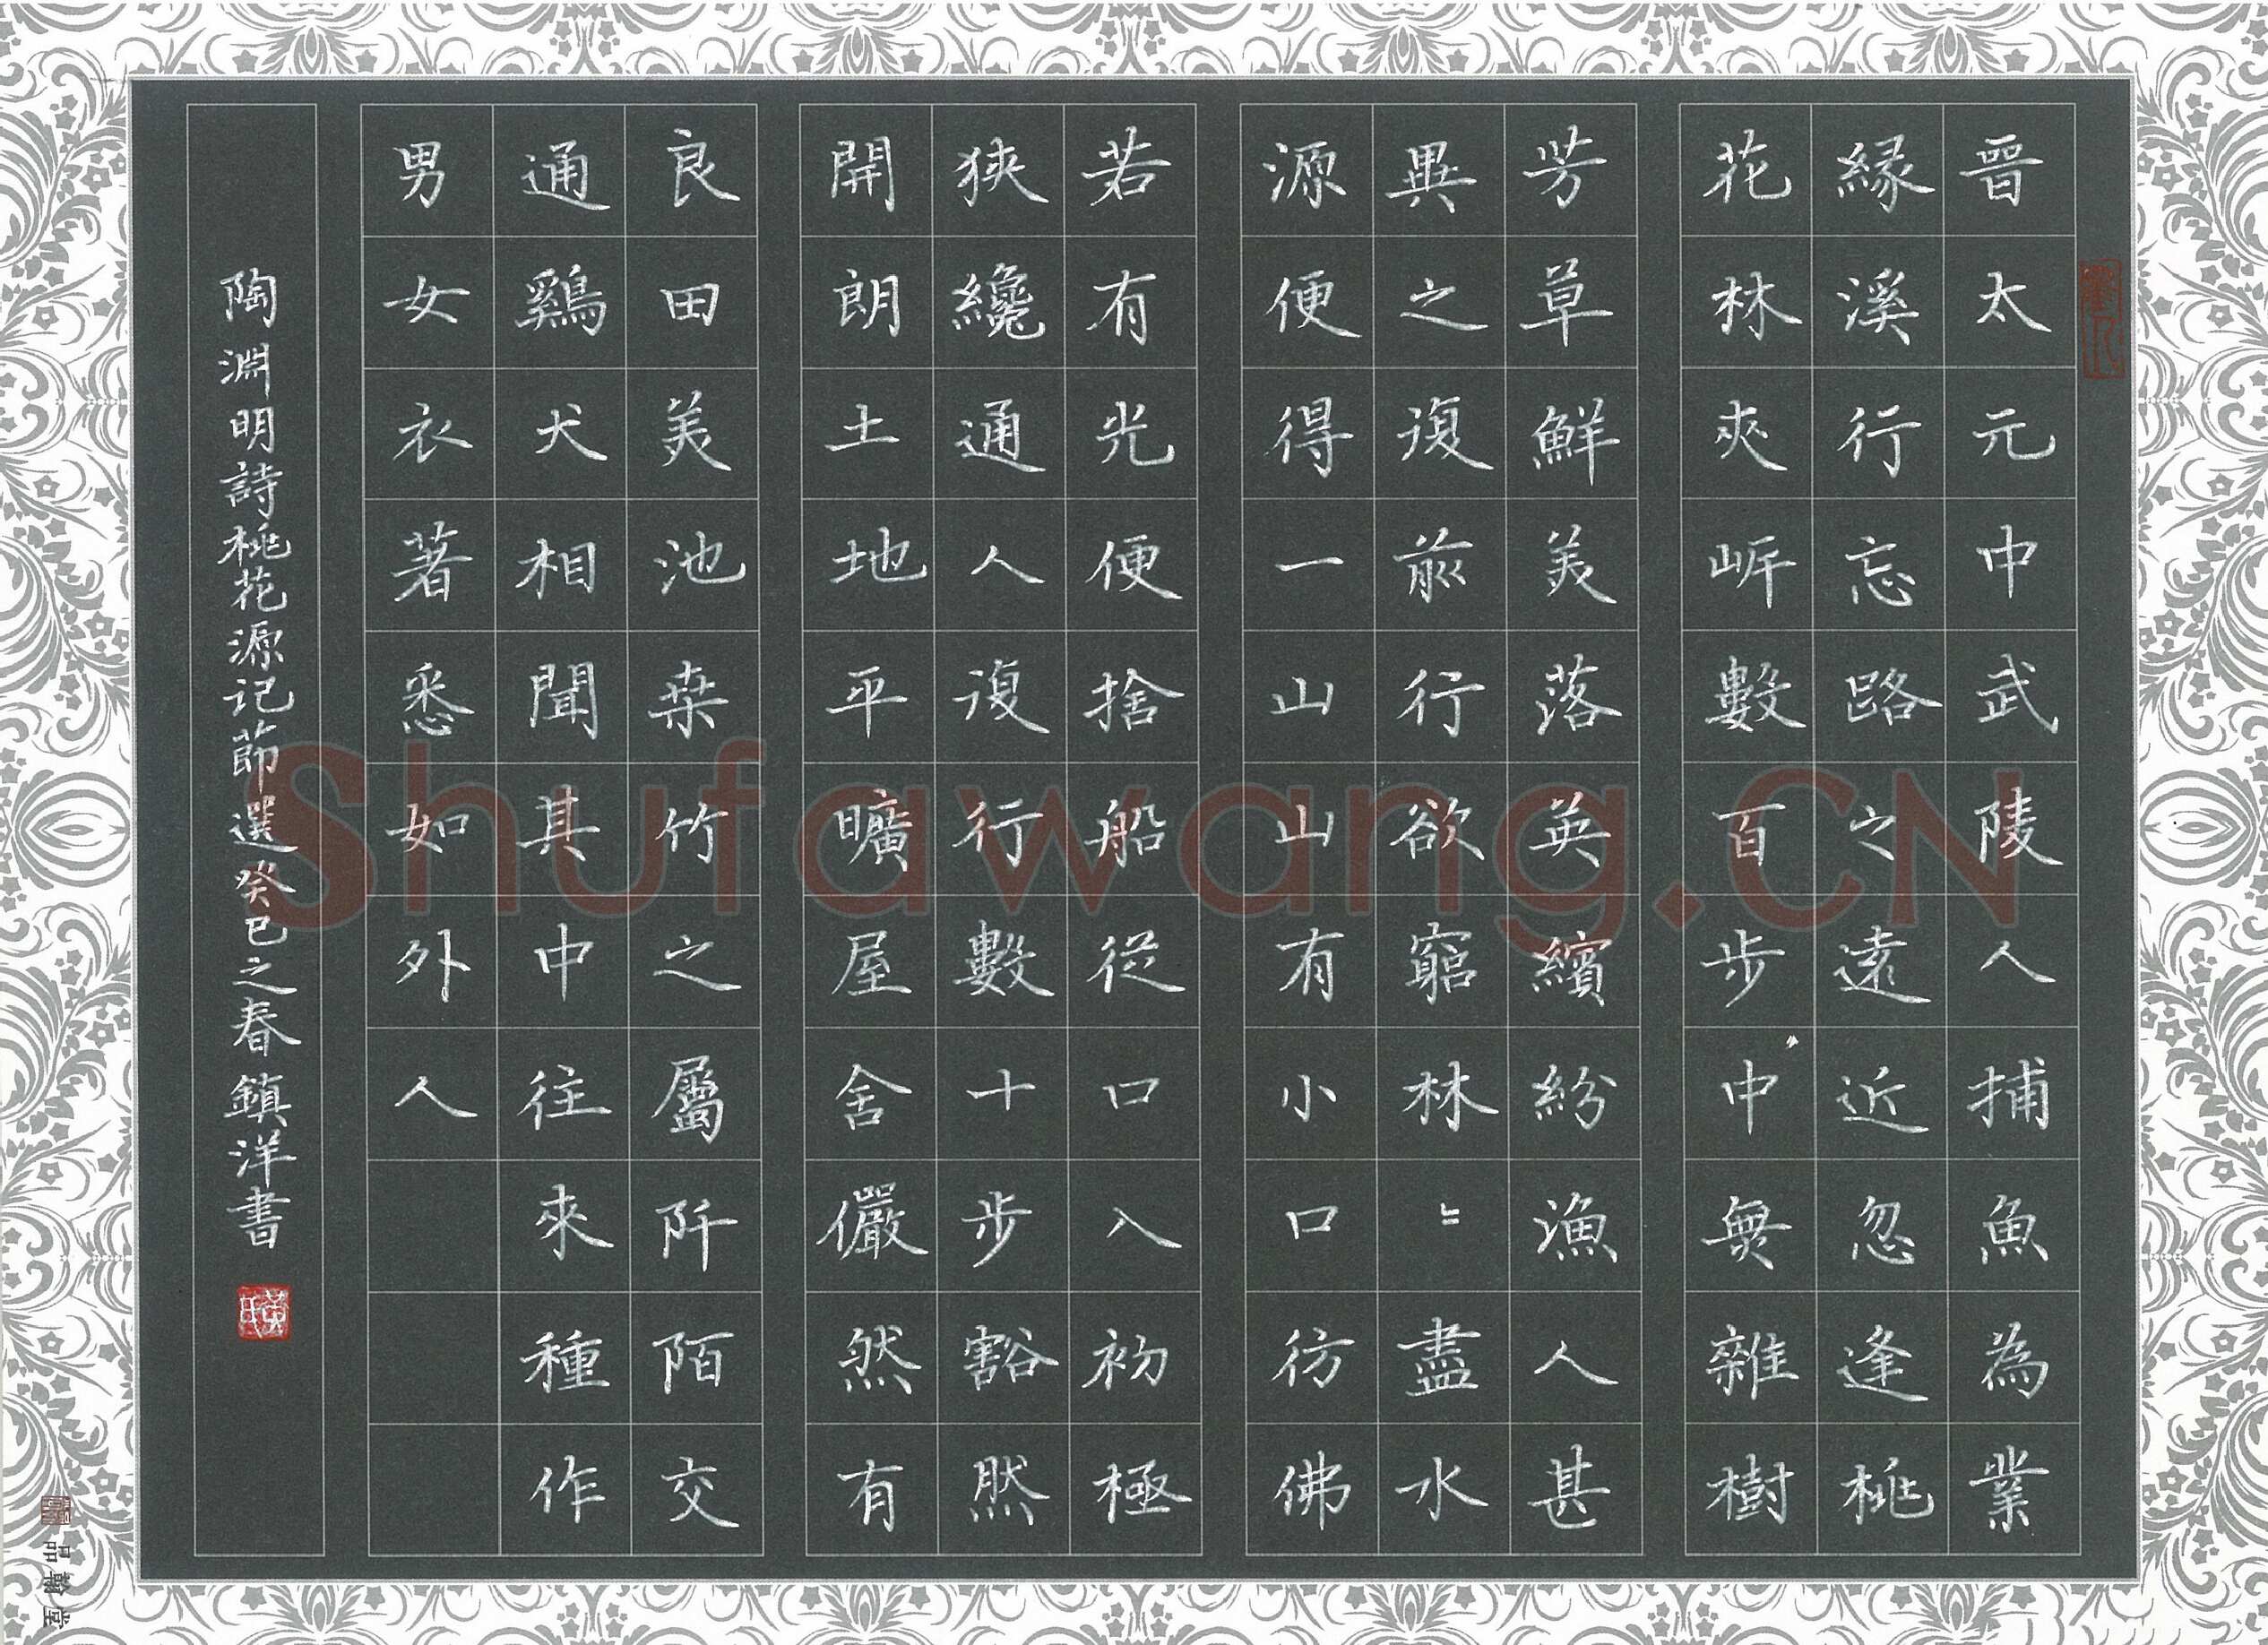 晉太元中武陵人捕魚為業
緣溪行忘路之遠近忽逢桃
花林夾岍數百步中無雜樹
芳草鮮美落英繽紛漁人甚
異之復前行欲窮林〻盡水
源便得一山山有小口彷佛
若有光便捨船從口入初極
狹纔通人復行數十步豁然
開朗土地平曠屋舍儼然有
良田美池桒竹之屬阡陌交
通鷄犬相聞其中往來種作
男女衣著悉如外人
陶淵明詩桃花源记節選癸巳之春鎮洋書
黃氏
品翰堂
Shufawang.CN